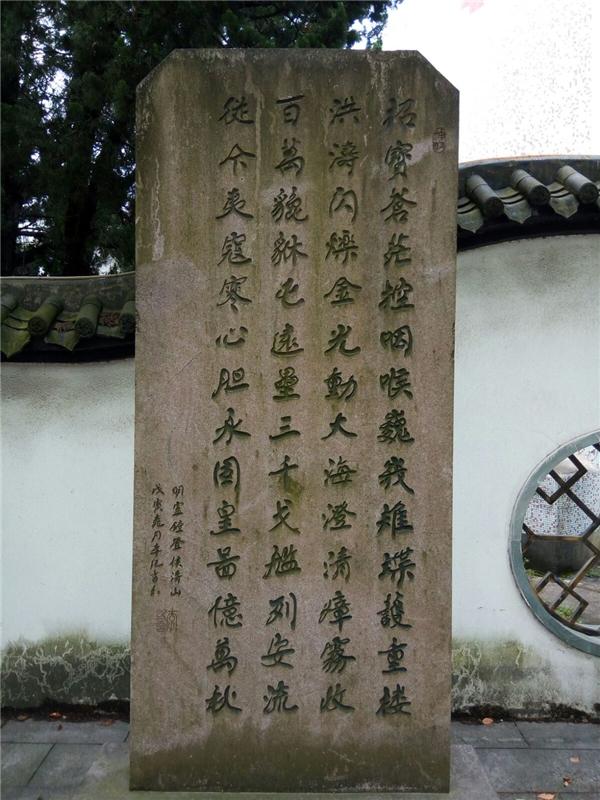 招寶蒼茫控咽喉巍峩雉堞護重楼
洪濤闪爍金光動大海澄清瘴霧收
百萬貔貅屯遠壘三千戈艦列安流
從今夷寇寒心胆永固皇啚億萬秋
明盧鏜登候濤山
戊寅 月